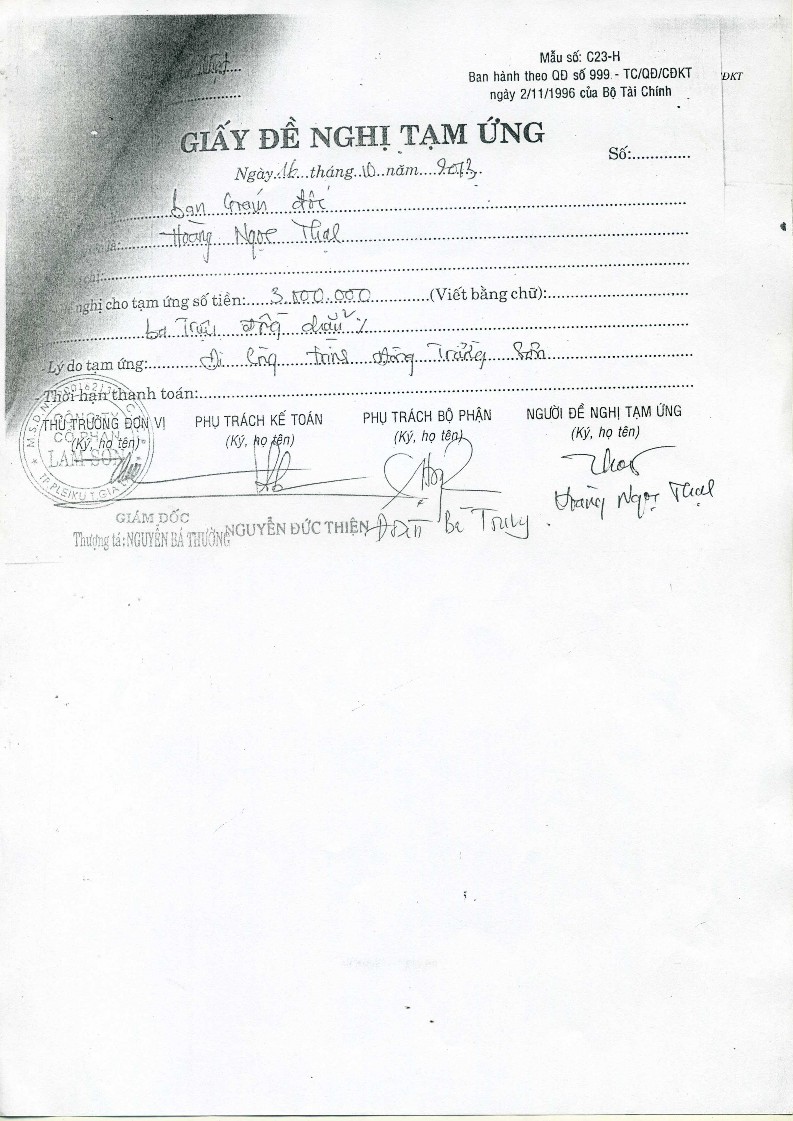 Mẫu số: C23-H
Ban hành theo QĐ số 999 - TC/QĐ/CĐKT
ĐKT
ngày 2/11/1996 của Bộ Tài Chính
GIẤY ĐỀ NGHỊ TẠM ỨNG
Số:.............
Ngày tháng 10 năm 2013
ban Giám đốc
Hoàng Ngọc Thạl
nghị cho tạm ứng số tiền: 3.000.000 (Viết bằng chữ):
ba Triệu đồng chẵn
Lý do tạm ứng: Đi Công trình đông Trường Sơn
Thời hạn thanh toán:
THỦ TRƯỞNG ĐƠN VỊ PHỤ TRÁCH KẾ TOÁN PHỤ TRÁCH BỘ PHẬN NGƯỜI ĐỀ NGHỊ TẠM ỨNG
(Ký, họ tên) (Ký, họ tên) (Ký, họ tên) (Ký, họ tên)
CÔNG TY
CỔ PHẦN
LAM SƠN
TP.PLEIKU T.GIA
Hoàng Ngọc Thạl
GIÁM ĐỐC
Thượng tá: NGUYỄN BÁ THƯỜNG NGUYỄN ĐỨC THIỆN Bá